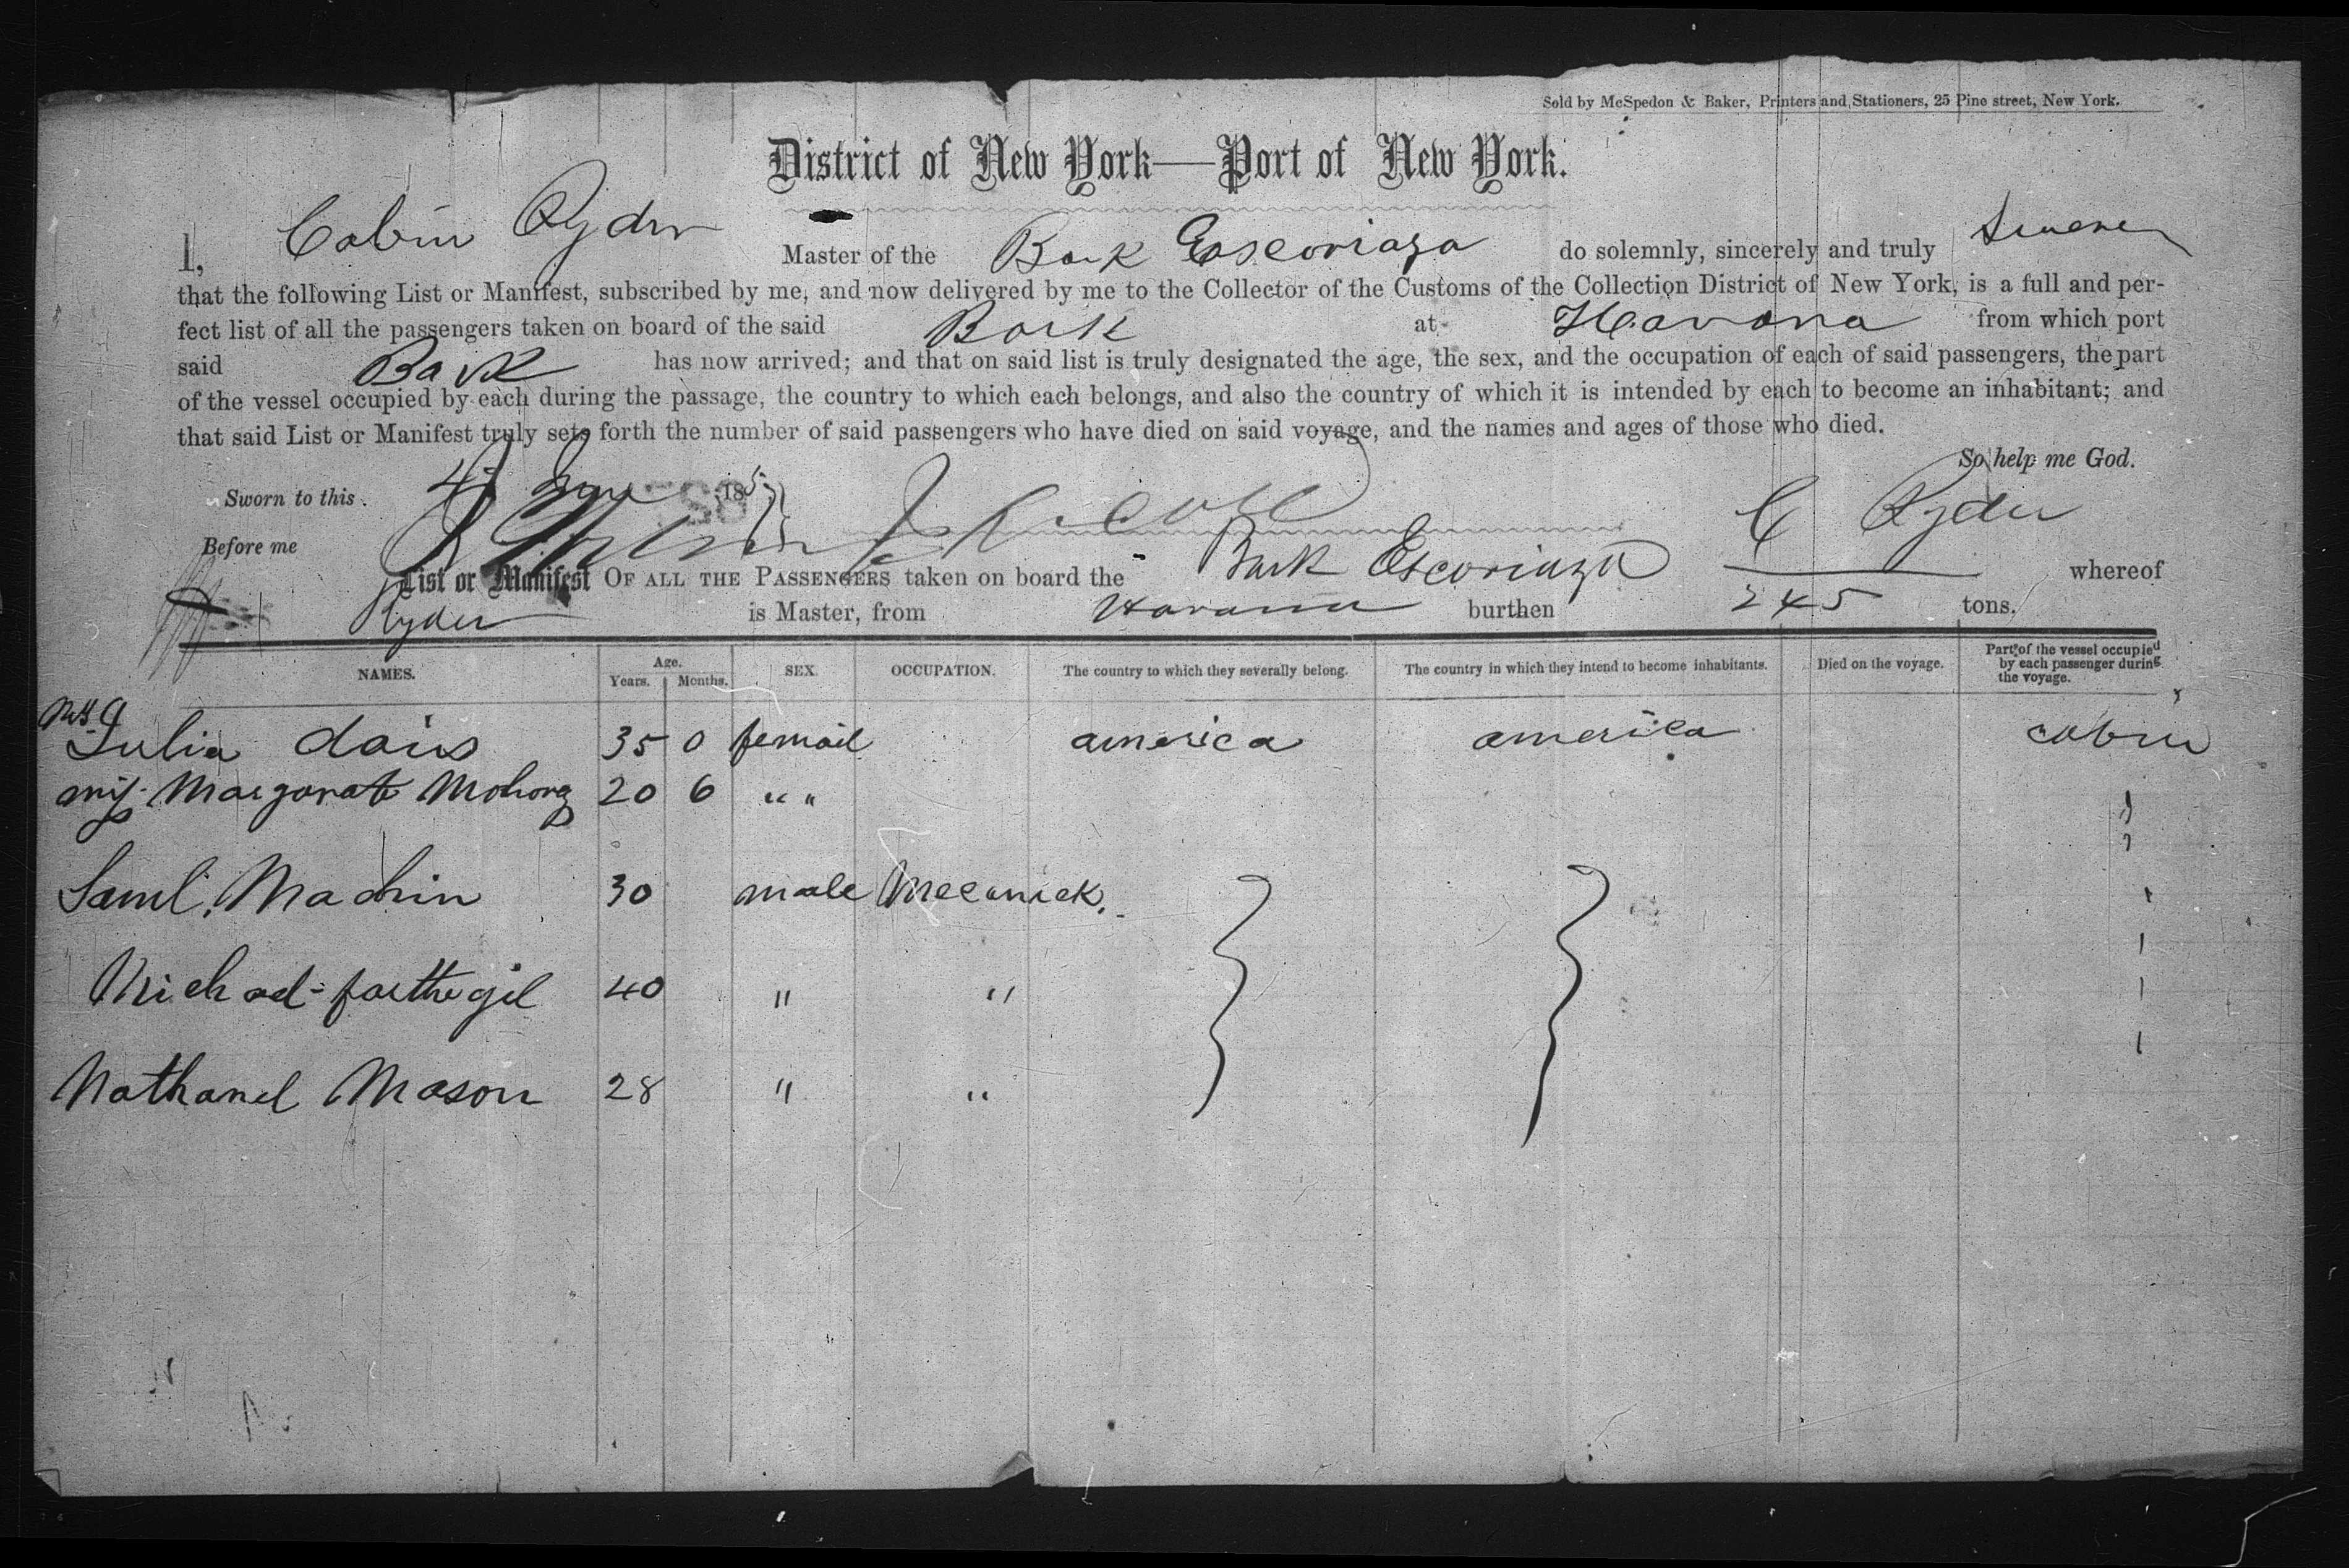 Sold by McSpedon & Baker, Printers and Stationers, 25 Pine street, New York.
District of New York—Port of New York.
I, Calvin Ryder Master of the Bark Escoriaza do solemnly, sincerely and truly Swear
that the following List or Manifest, subscribed by me, and now delivered by me to the Collector of the Customs of the Collection District of New York, is a full and per-
fect list of all the passengers taken on board of the said Bark at Havana from which port
said Bark has now arrived; and that on said list is truly designated the age, the sex, and the occupation of each of said passengers, the part
of the vessel occupied by each during the passage, the country to which each belongs, and also the country of which it is intended by each to become an inhabitant; and
that said List or Manifest truly sets forth the number of said passengers who have died on said voyage, and the names and ages of those who died.
So help me God.
Sworn to this 185
Before me C Ryder
List or Manifest OF ALL THE PASSENGERS taken on board the Bark Escoriaza whereof
Ryder is Master, from Havana burthen 245 tons.
NAMES. Age. Years. Months. SEX. OCCUPATION. The country to which they severally belong. The country in which they intend to become inhabitants. Died on the voyage. Part of the vessel occupied by each passenger during the voyage.
Julia davis 35 0 femail america america cabin
mis Margarat 20 6 " "
Saml. Machin 30 male Mecanick.
Michael 40 " "
Nathanel Mason 28 " "